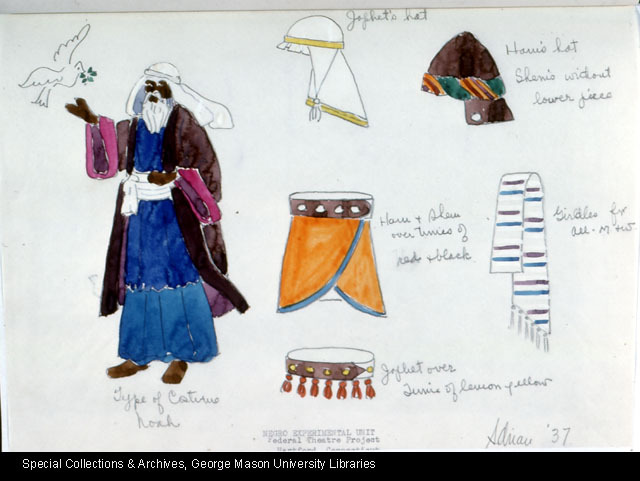 Japhet's hat
Ham's hat
Shem's without
lower piece
Ham & Shem
over tunics of
red & black
Girdles for
all - M & W
Japhet over
Tunic of lemon yellow
Type of Costume
Noah
NEGRO EXPERIMENTAL UNIT
Federal Theatre Project
Hartford, Connecticut
Adrian '37
Special Collections & Archives, George Mason University Libraries